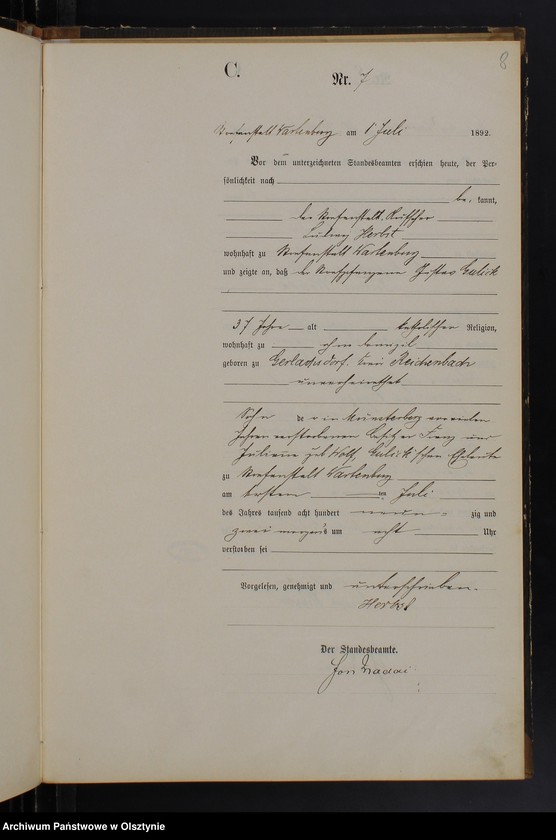 8
C.
Nr. 7
Strafanstalt Wartenburg am 1 Juli 1892.
Vor dem unterzeichneten Standesbeamten erschien heute, der Per-
sönlichkeit nach
be kannt,
der Strafanstalts
Ludwig Herbst
wohnhaft zu Strafanstalt Wartenburg
und zeigte an, daß der Strafgefangene Gustav Gulich
37 Jahre alt katholischer Religion,
wohnhaft zu
geboren zu Gerlachsdorf Kreis Reichenbach
unverheirathet
Sohn der in Münsterberg
verstorbenen Besitzer Franz und
geb Wolf, Gulich'schen Eheleute
zu Strafanstalt Wartenburg
am ersten Juli
des Jahres tausend acht hundert neun- zig und
zwei morgens um acht Uhr
verstorben sei
Vorgelesen, genehmigt und unterschrieben.
Herbst
Der Standesbeamte.
Archiwum Państwowe w Olsztynie